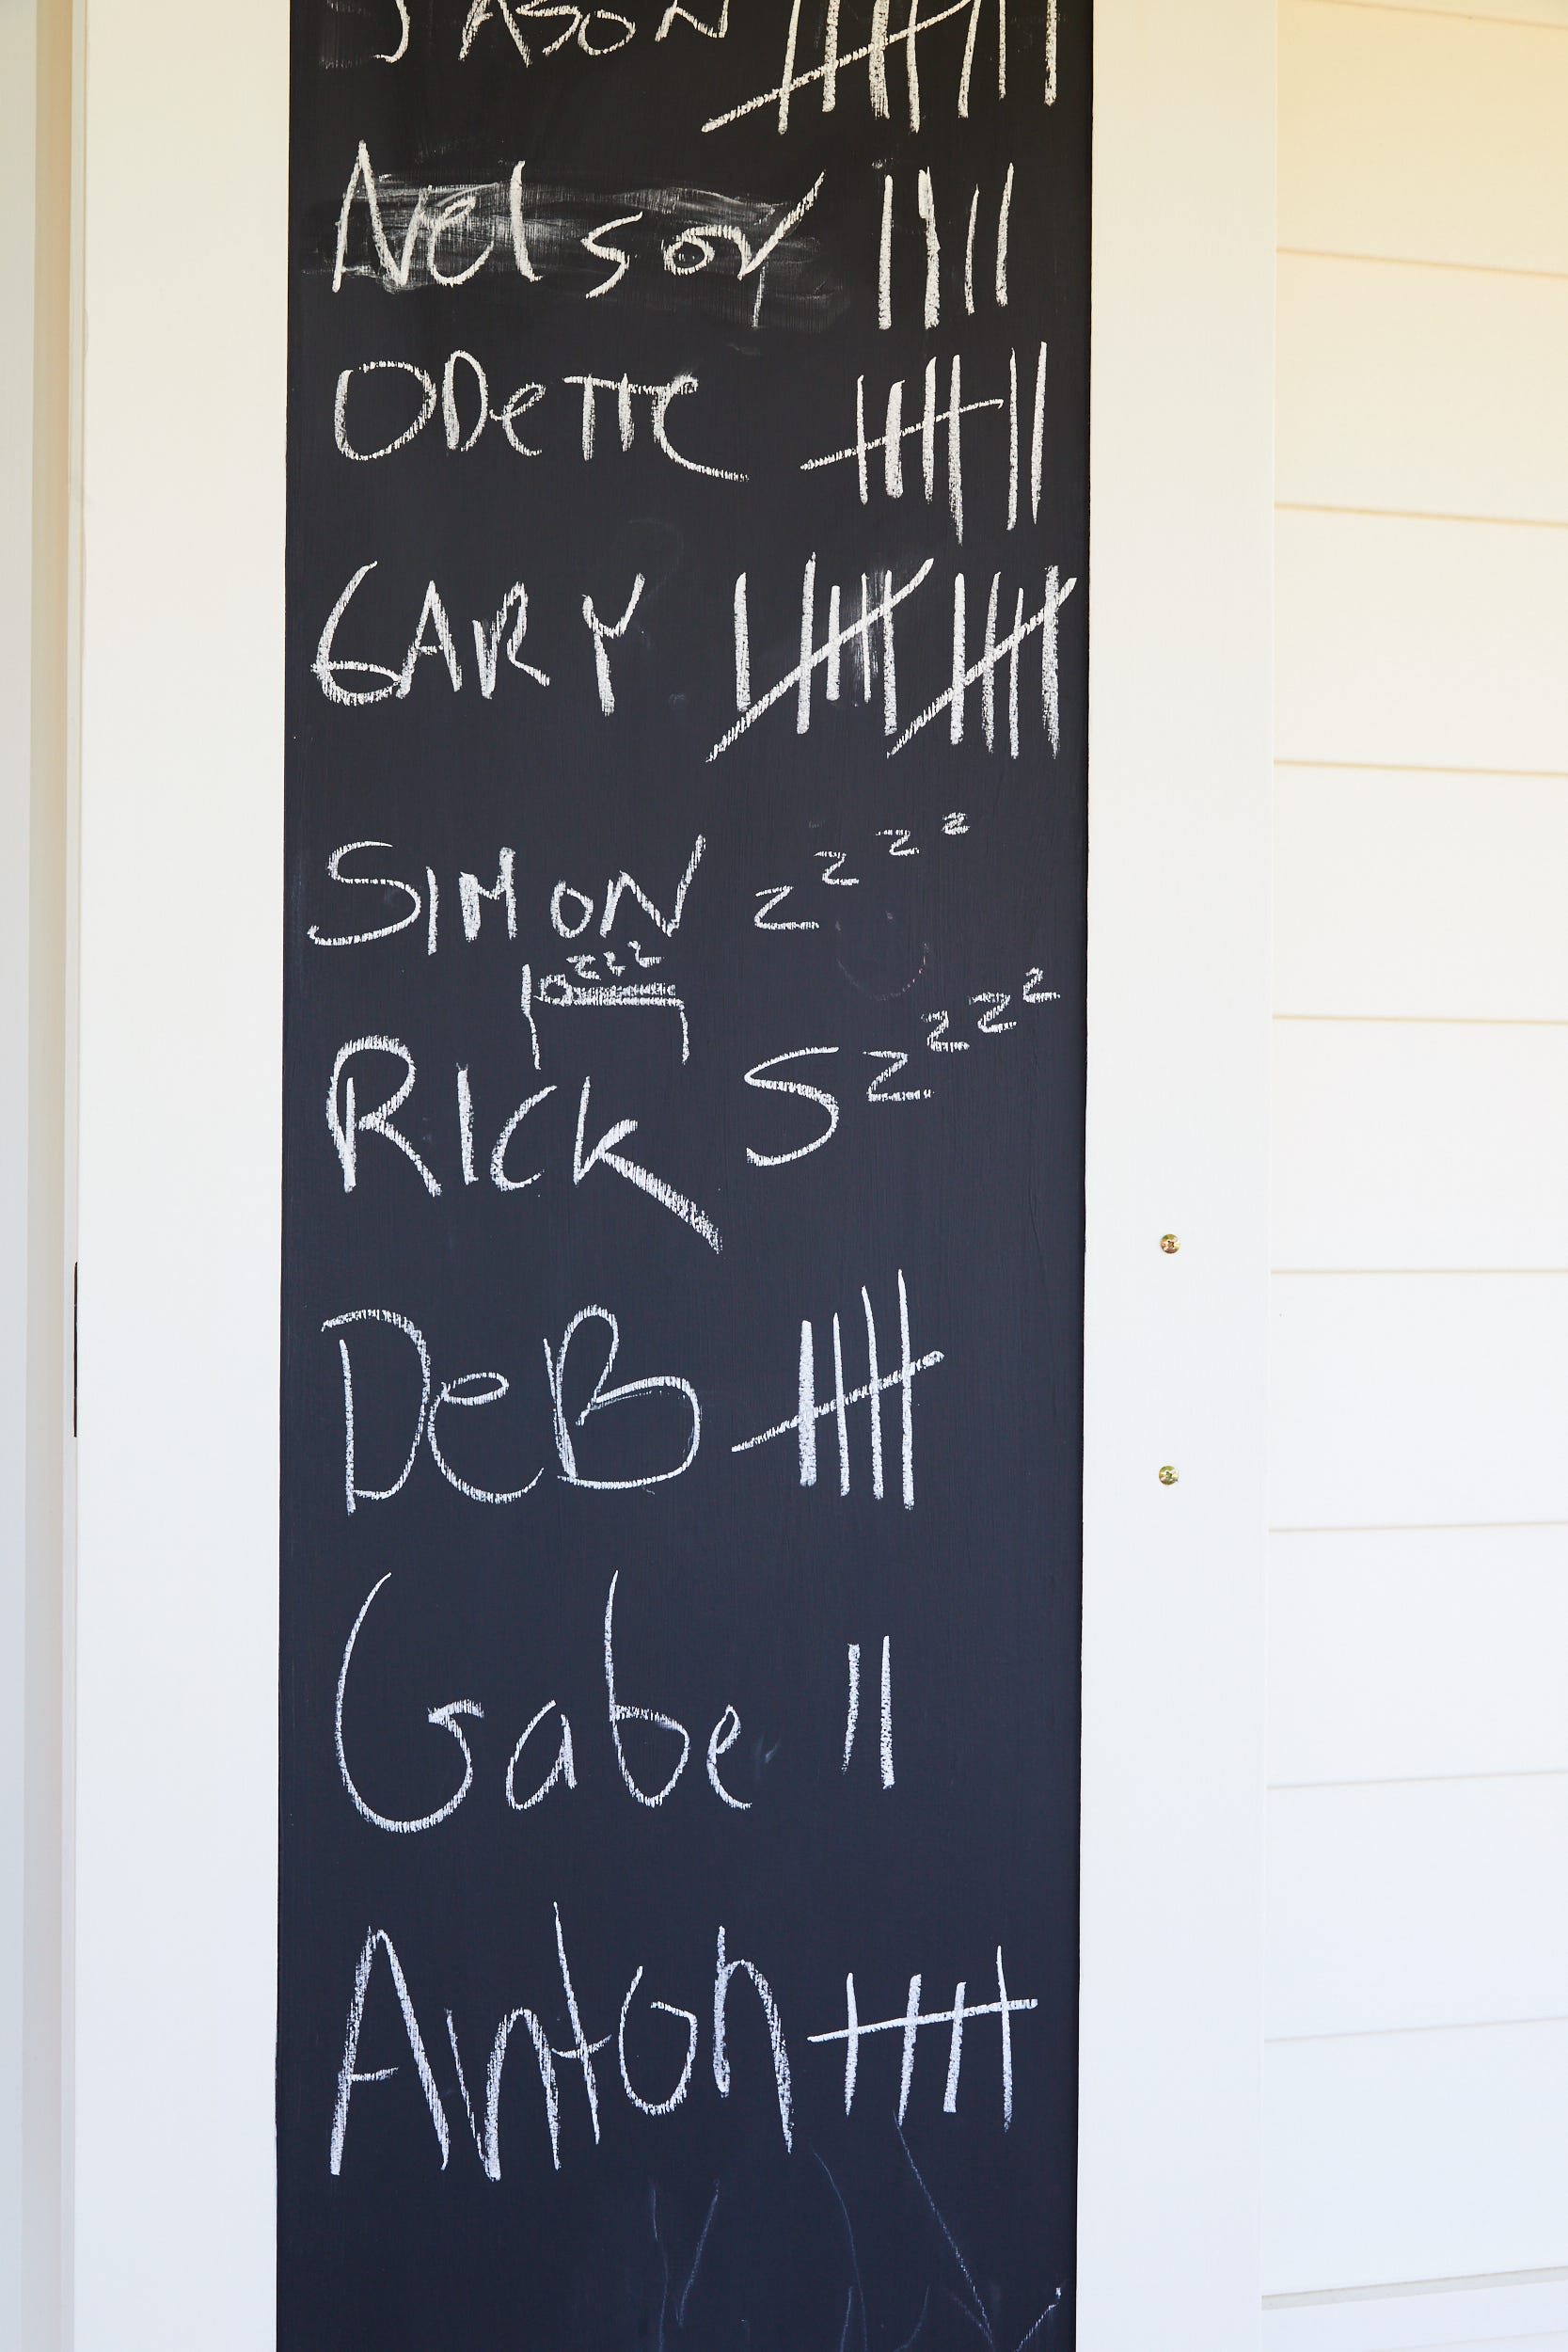 JASON
Nelson
ODeTTe
GARY
SIMON zzzz
zzz
RICK Szzzz
DeB
Gabe
Anton